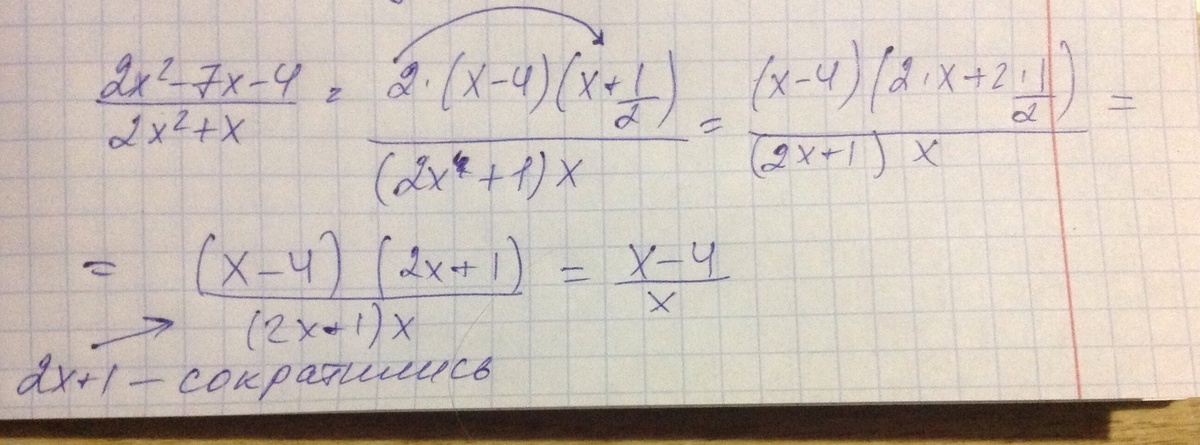 (2x² – 7x – 4)/(2x² + x) = (2·(x–4)(x+1/2))/((2x+1)x) = ((x–4)(2·x+2·1/2))/((2x+1) x) =
= ((x–4)(2x+1))/((2x+1)x) = (x–4)/x
2x+1 – сократились